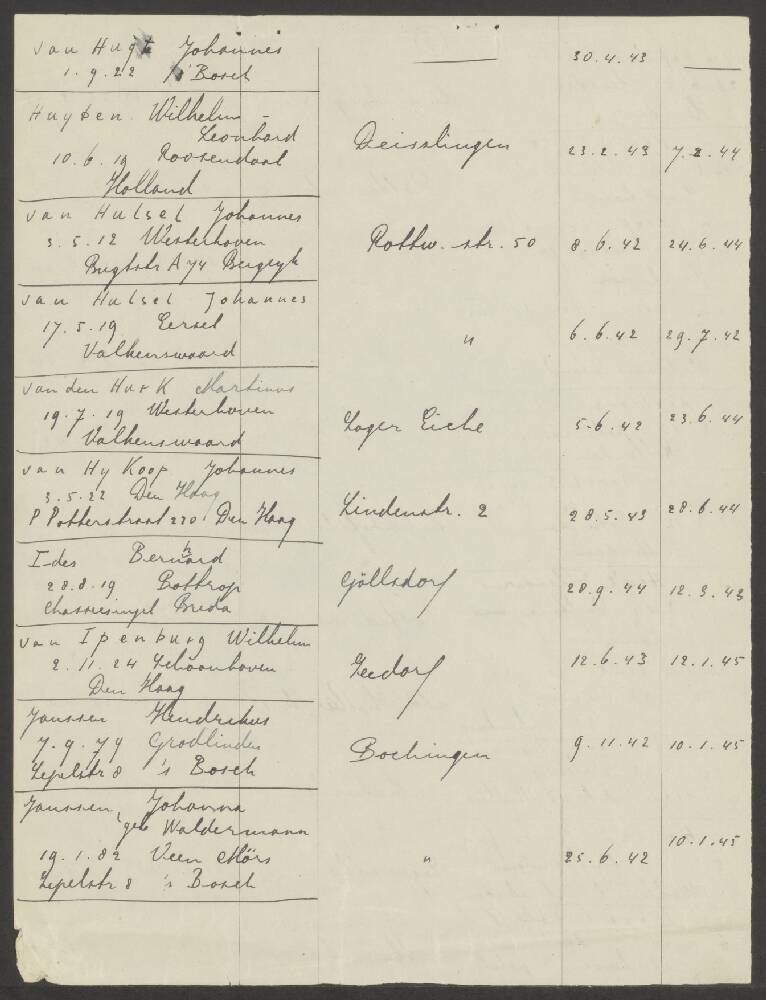 van Hugte Johannes 30.4.43
1.9.22 's Bosch
Huyben Wilhelm -
Leonhard
10.6.19 Roosendaal Deisslingen 23.2.43 7.2.44
Holland
van Hulsel Johannes
3.5.12 Westerhoven Rottw. str. 50 8.6.42 24.6.44
A 74 Bergeyk
van Hulsel Johannes
17.5.19 Eersel " 6.6.42 29.7.42
Valkenswaard
van den Hurk Martinus
19.7.19 Westerhoven Lager Eiche 5-6.42 23.6.44
Valkenswaard
van Hy Koop Johannes
3.5.22 Den Haag
P Potterstraat 220 Den Haag Lindenstr. 2 28.5.43 28.6.44
Ides Bernhard
28.8.19 Bottrop Göllsdorf 28.9.44 12.3.43
Chassesingel Breda
van Ipenburg Wilhelm
2.11.24 Schoonhoven Zeedorf 12.6.43 12.1.45
Den Haag
Janssen Hendrikus
7.9.79 Grodlinden Bochingen 9.11.42 10.1.45
Zepelstr 8 's Bosch
Janssen, Johanna
geb Waldermann
19.1.82 Veen Mörs " 25.6.42 10.1.45
Zepelstr 8 's Bosch